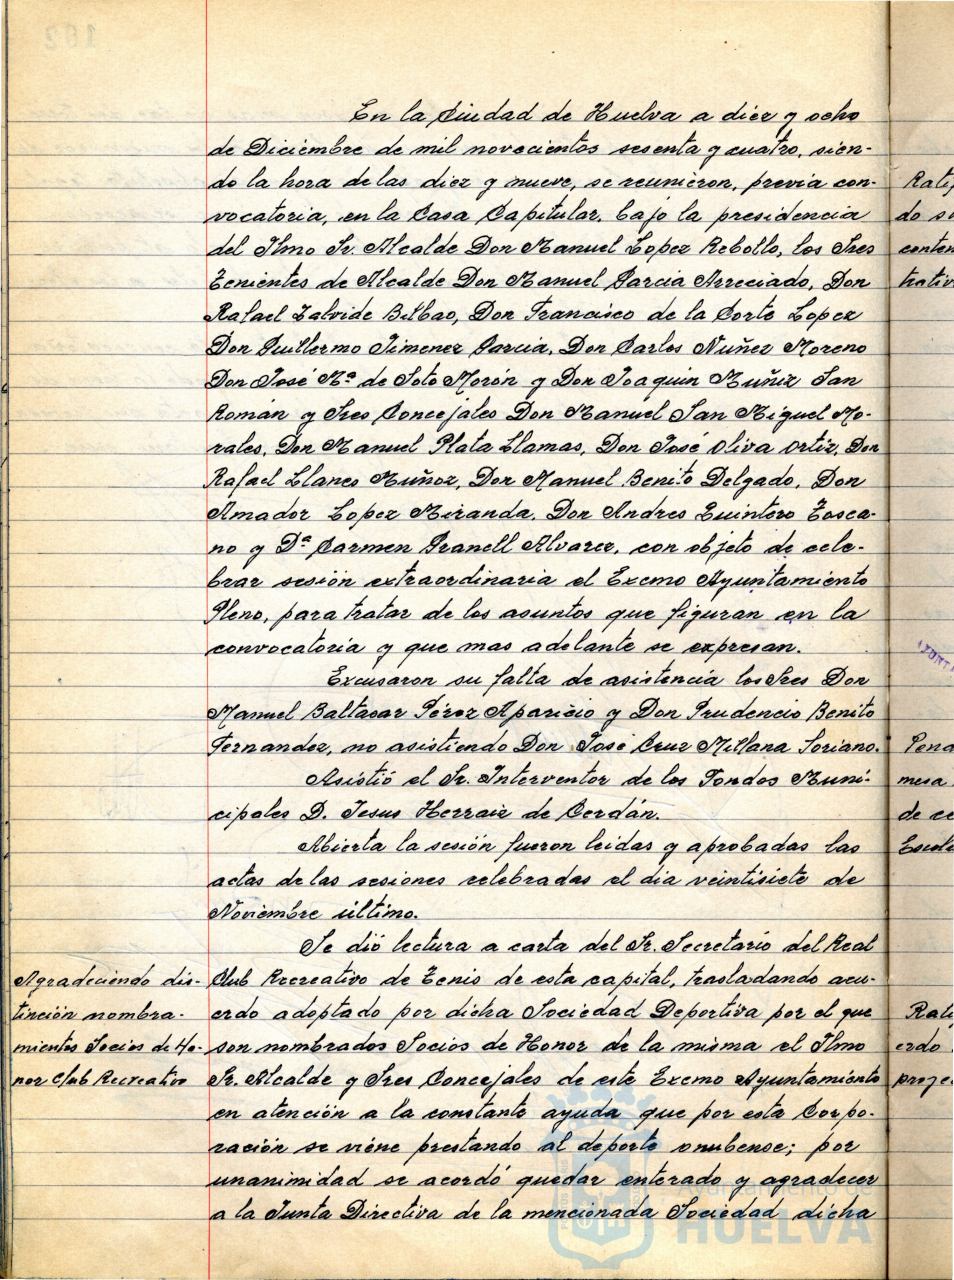 En la Ciudad de Huelva a diez y ocho
de Diciembre de mil novecientos sesenta y cuatro, sien-
do la hora de las diez y nueve, se reunieron, previa con-
vocatoria, en la Casa Capitular, bajo la presidencia
del Ilmo Sr. Alcalde Don Manuel Lopez Rebollo, los Sres
Tenientes de Alcalde Don Manuel Garcia Arreciado, Don
Rafael Zalvide Bilbao, Don Francisco de la Corte Lopez
Don Guillermo Jimenez Garcia, Don Carlos Nuñez Moreno
Don José Mª de Soto Morón y Don Joaquin Muñiz San
Román y Sres Concejales Don Manuel San Miguel Mo-
rales, Don Manuel Plata Llamas, Don José Oliva Ortiz, Don
Rafael Llanes Muñoz, Don Manuel Benito Delgado, Don
Amador Lopez Miranda, Don Andres Quintero Tosca-
no y Dª Carmen Granell Alvarez, con objeto de cele-
brar sesión extraordinaria el Excmo Ayuntamiento
Pleno, para tratar de los asuntos que figuran en la
convocatoria y que mas adelante se expresan.
Excusaron su falta de asistencia los Sres Don
Manuel Baltasar Pérez Aparicio y Don Prudencio Benito
Fernandez, no asistiendo Don José Cruz Millana Soriano.
Asistió el Sr. Interventor de los Fondos Muni-
cipales D. Jesus Herraiz de Cerdán.
Abierta la sesión fueron leidas y aprobadas las
actas de las sesiones celebradas el dia veintisiete de
Noviembre último.
Se dió lectura a carta del Sr. Secretario del Real
Club Recreativo de Tenis de esta capital, trasladando acu-
erdo adoptado por dicha Sociedad Deportiva por el que
son nombrados Socios de Honor de la misma el Ilmo
Sr. Alcalde y Sres Concejales de este Excmo Ayuntamiento
en atención a la constante ayuda que por esta Corpo-
ración se viene prestando al deporte onubense; por
unanimidad se acordó quedar enterado y agradecer
a la Junta Directiva de la mencionada Sociedad dicha
Agradeciendo dis-
tinción nombra-
mientos Socios de Ho-
nor Club Recreativo
do
mesa
de
erdo
Ayuntamiento de
HUELVA